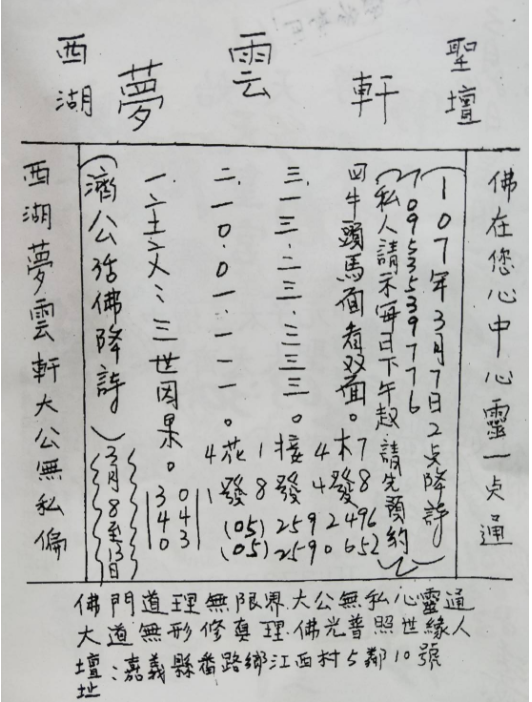 西湖 夢雲軒 聖壇
佛在您心中心靈一点通
(107年3月7日2点降詩
0953539776
(私人請示每日下午起請先預約)
四牛頭馬面者双面。
三.一三.二三.三三三。
二.一0.0一.一一。
三世因果。
(濟公活佛降詩)
4花1接4木7
1發8發4發8
(05)2592496
(05)2590652
30
44
03
3月8至13日
西湖夢雲軒大公無私偏
佛門道理無限界.大公無私心靈通
大道無形修真理.佛光普照世緣人
壇址:嘉義縣番路鄉江西村5鄰10號